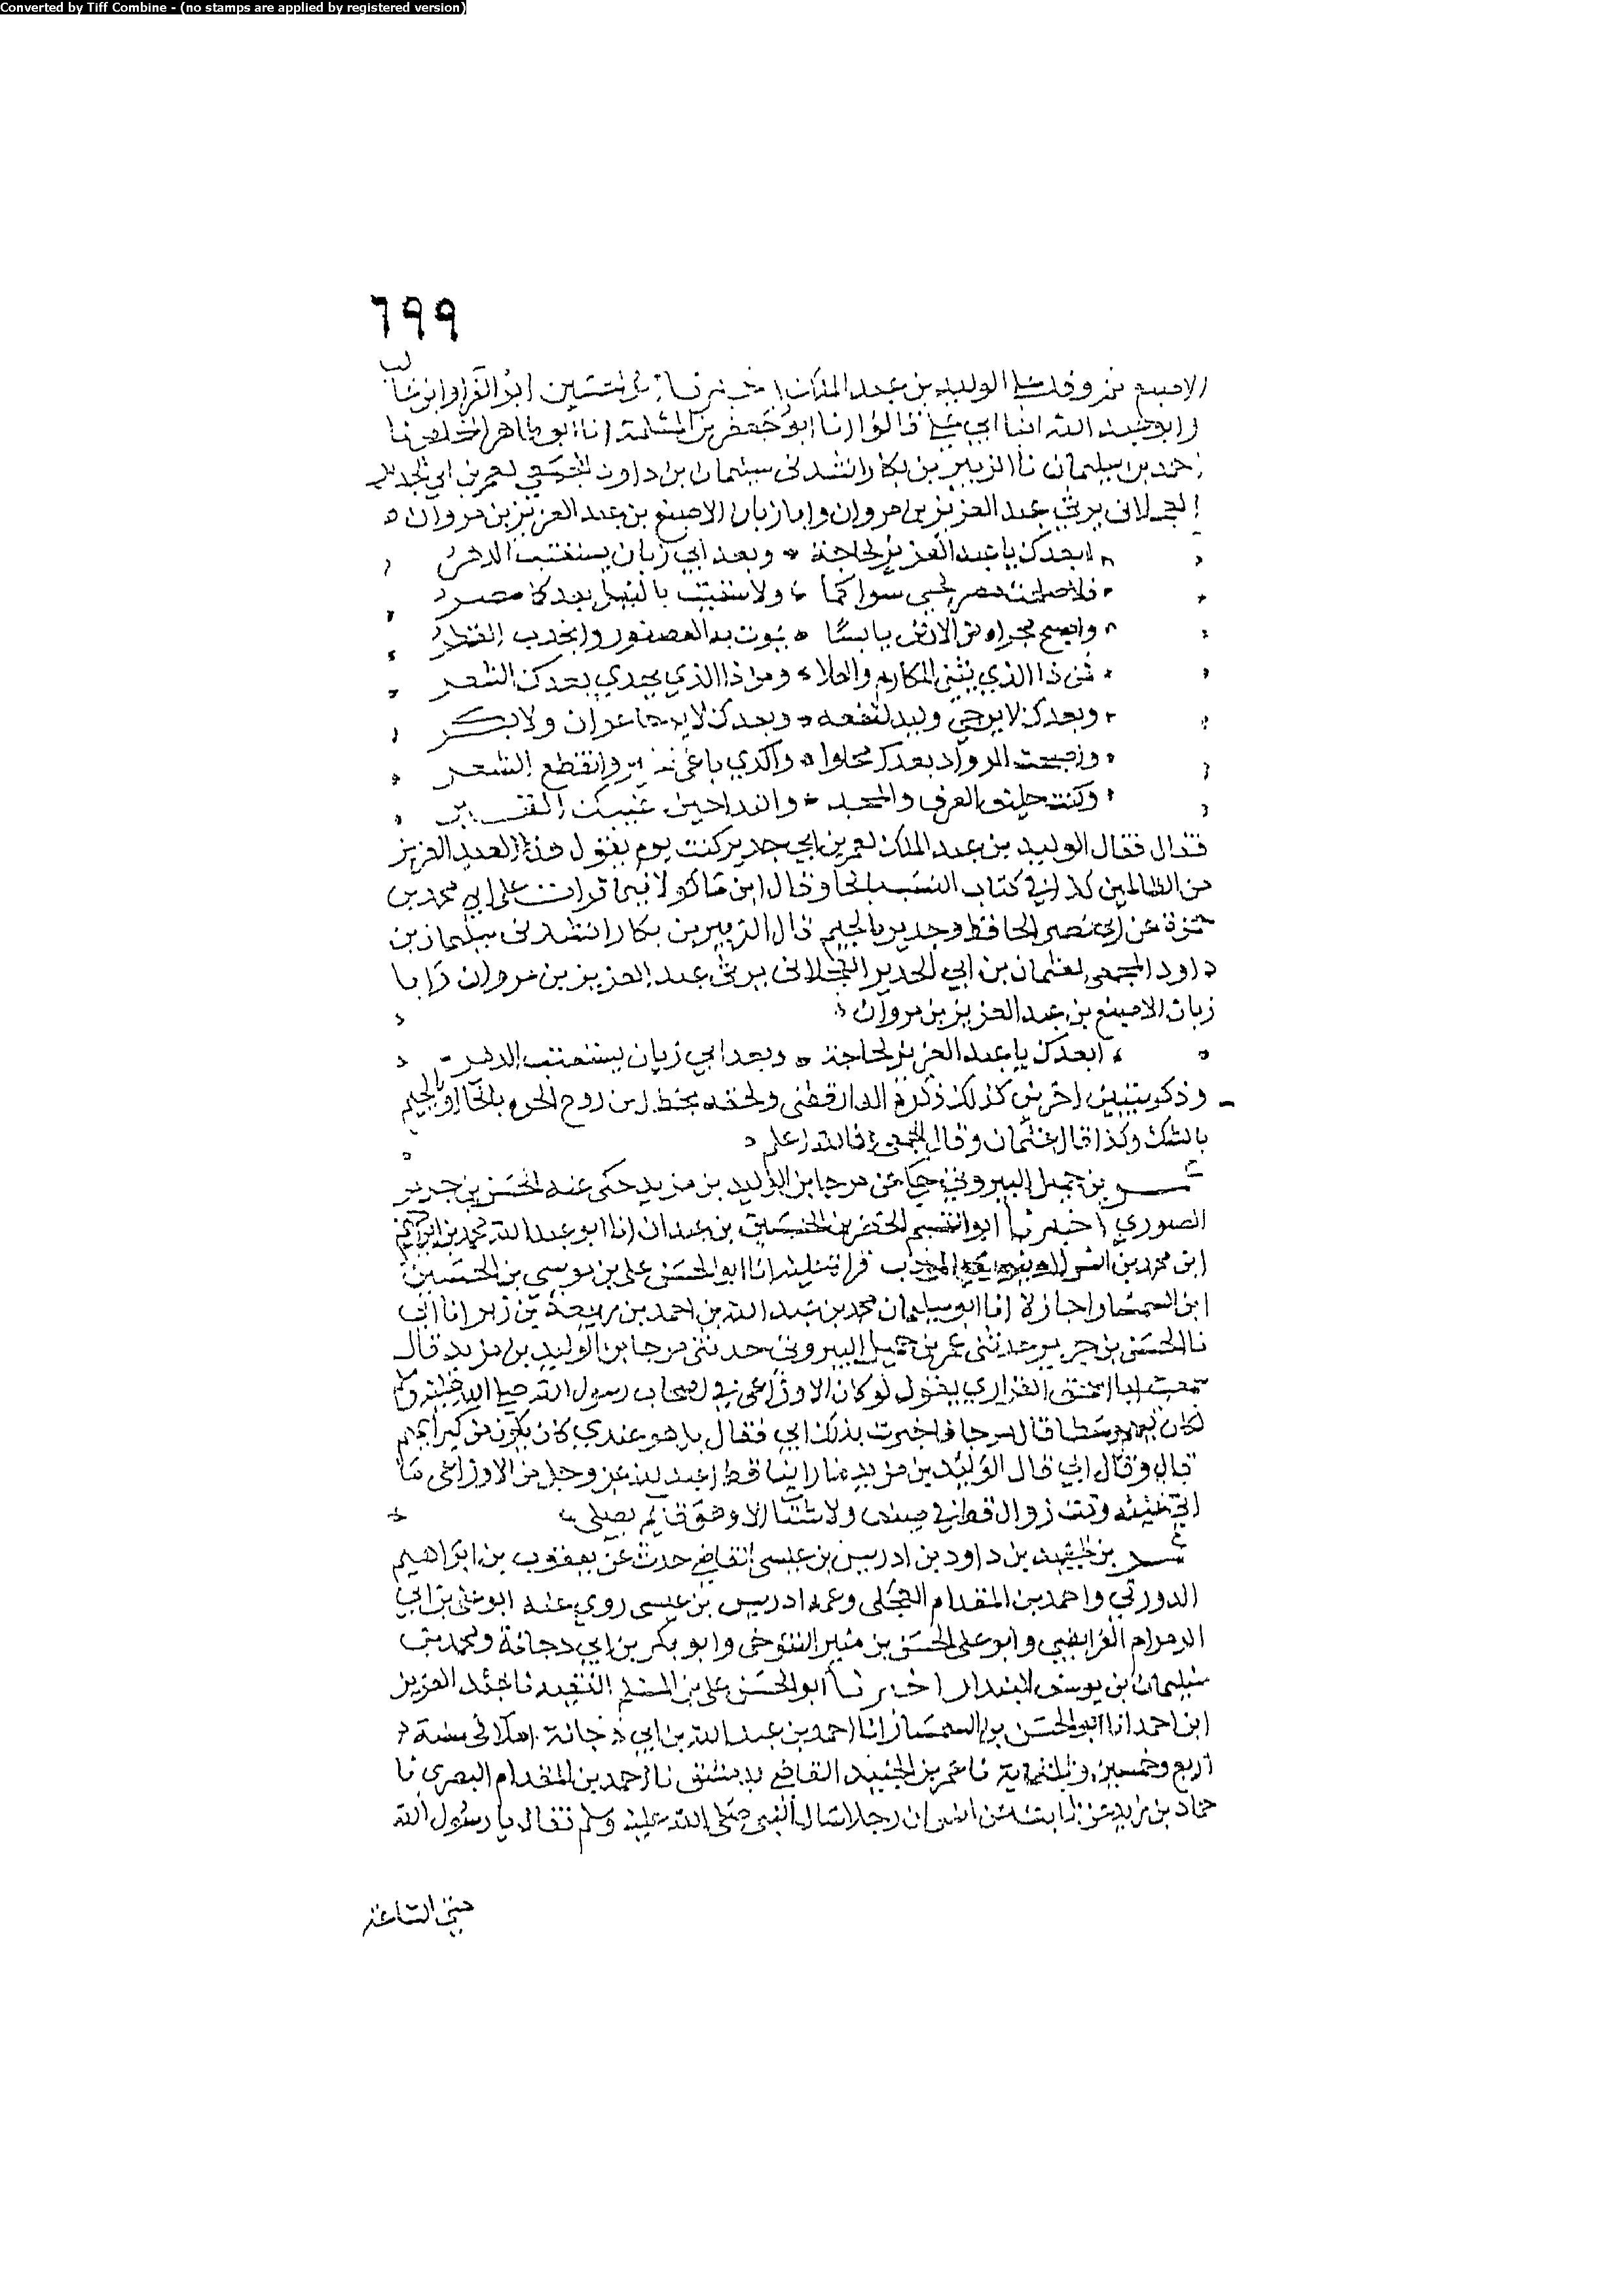 Converted by Tiff Combine - (no stamps are applied by registered version)
٦٩٩
الاصبغ ووفد على الوليد بن عبد الملك اخبرنا ابو الحسين ابن الفرا وابو غالب
وابو عبد الله ابنا ابي علي قالوا انا ابو جعفر بن المسلمة انا ابو طاهر المخلص نا
احمد بن سليمان نا الزبير بن بكار انشدني سليمان بن داود المجمعي لعمر بن ابي الجدير
العجلاني يرثي عبد العزيز بن مروان وابا زبان الاصبغ بن عبد العزيز بن مروان
ابعدك يا عبد العزيز لحاجة وبعد ابي زبان يستعتب الدهر
فلا صلحت مصر لحي سواكما ولا سقيت بالنيل بعدكما مصر
واصبح مجراه من الارض يابسا يموت به العصفور وانجدب القطر
فمن ذا الذي يبني المكارم والعلا ومن ذا الذي يهدي بعدك الشعر
وبعدك لا يرجى وليد لنفعه وبعدك لا يرجا عوان ولا بكر
واصبحت الرواد بعدك محلوا واكدي باغي خير وانقطع الشعر
وكنت حليف العرف والمجد والندا حين غيبك القبر
قال فقال الوليد بن عبد الملك لعمر بن ابي جدير كنت يوم تقول هذا لعبد العزيز
من الظالمين كذا في كتاب النسب بالحا وقال ابن ماكولا فيما قرات على ابي محمد بن
حمزة عن ابي نصر الحافظ وجدير بالجيم قال الزبير بن بكار انشدني سليمان بن
داود المجمعي لعثمان بن ابي الجدير العجلاني يرثي عبد العزيز بن مروان وابا
زبان الاصبغ بن عبد العزيز بن مروان
ابعدك يا عبد العزيز لحاجة وبعد ابي زبان يستعتب الدهر
وذكر بيتين اخرين كذلك ذكره الدارقطني ولحقه بخط ابن روح الحره بالحا او بالجيم
بالشك وكذا قال عثمان وقال المجمعي فالله اعلم
عمر بن جميل البيروتي حكا عن مرجا بن الوليد بن مزيد حكى عنه الحسن بن جرير
الصوري اخبرنا ابو القسم الخضر بن الحسين بن عبدان انا ابو عبد الله محمد بن ابراهيم
ابن محمد بن قراة عليه انا ابو الحسن علي بن موسى بن الحسين
ابن السمسار اجازة انا ابو سليمان محمد بن عبد الله بن احمد بن ربيعة بن زبر انا ابي
نا الحسن بن جرير حدثني عمر بن جميل البيروتي حدثني مرجا بن الوليد بن مزيد قال
سمعت ابا اسحق الفزاري يقول لو كان الاوزاعي في اصحاب رسول الله صلى الله عليه وسلم
لكان فيهم وسطا قال مرجا فاخبرت بذلك ابي فقال بل هو عندي كان يكون من كبرائهم
قال وقال ابي قال الوليد بن مزيد ما راينا قط اعبد لله عز وجل من الاوزاعي ما
اتى عليه وقت زوال قط في صيف ولا شتا الا وهو قايم يصلي
عمر بن الجنيد بن داود بن ادريس بن عيسى القاضي حدث عن يعقوب بن ابراهيم
الدورقي واحمد بن المقدام العجلي وعمه ادريس بن عيسى روى عنه ابو علي بن ابي
الرمرام الفرايضي وابو علي الحسن بن منير التنوخي وابو بكر بن ابي دجانة ومحمد بن
سليمان بن يوسف البندار اخبرنا ابو الحسن علي بن المسلم الفقيه نا عبد العزيز
ابن احمد انا ابو الحسن بن السمسار انا احمد بن عبد الله بن ابي دجانة املا في سنة
اربع وخمسين وثلثماية نا عمر بن الجنيد القاضي بدمشق نا احمد بن المقدام البصري نا
حماد بن زيد عن ثابت عن انس ان رجلا سال النبي صلى الله عليه وسلم فقال يا رسول الله
متى الساعة